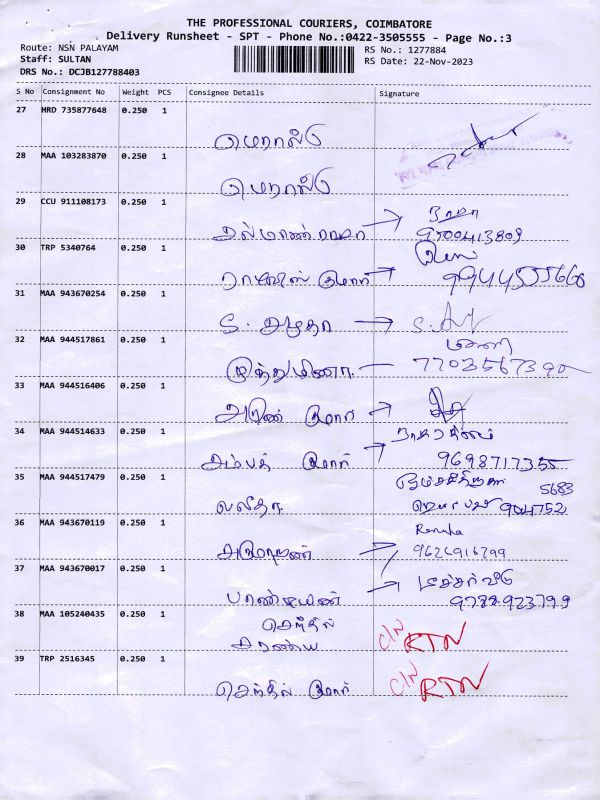 THE PROFESSIONAL COURIERS, COIMBATORE
Delivery Runsheet - SPT - Phone No.:0422-3505555 - Page No.:3
Route: NSN PALAYAM
RS No.: 1277884
Staff: SULTAN
RS Date: 22-Nov-2023
DRS No.: DCJB127788403
S No Consignment No Weight PCS Consignee Details Signature
27 HRD 735877648 0.250 1
28 MAA 103283870 0.250 1
29 CCU 911108173 0.250 1
9500413809
30 TRP 5340764 0.250 1
குமார் 9944555666
31 MAA 943670254 0.250 1
S. அமுதா S.
32 MAA 944517861 0.250 1
மணி
முத்துமீனா 7703567390
33 MAA 944516406 0.250 1
அருண் குமார்
34 MAA 944514633 0.250 1
சம்பத் குமார் 9698717355
35 MAA 944517479 0.250 1
5683
லலிதா 904752
36 MAA 943670119 0.250 1
Renuka
9626916799
37 MAA 943670017 0.250 1
டீச்சர் வீடு
பாண்டியன் 9788-923799
38 MAA 105240435 0.250 1
செந்தில்
சரண்யா C/N RTN
39 TRP 2516345 0.250 1
செந்தில் குமார் C/N RTN